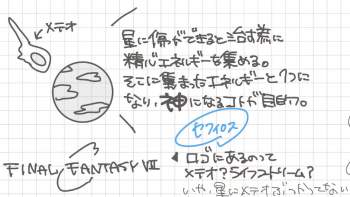 メテオ
星に傷ができると治す為に
精神エネルギーを集める。
そこに集まったエネルギーと1つに
なり、神になるコトが目的。
セフィロス
FINAL FANTASY VII
◀ ロゴにあるのって
メテオ？ライフストリーム？
いや、星にメテオぶつかってない